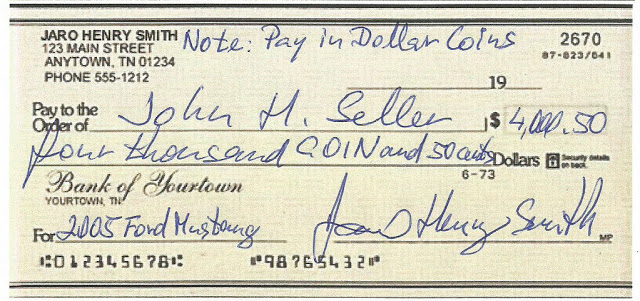 JARO HENRY SMITH Note: Pay in Dollar Coins 2670
123 MAIN STREET 87-823/641
ANYTOWN, TN 01234
PHONE 555-1212
19
Pay to the
Order of John H. Seller $ 4,000.50
four thousand COIN and 50 cents Dollars Security details on back.
6-73
Bank of Yourtown
YOURTOWN, TN
For 2005 Ford Mustang Jaro Henry Smith MP
⑆012345678⑆ ⑈98765432⑈